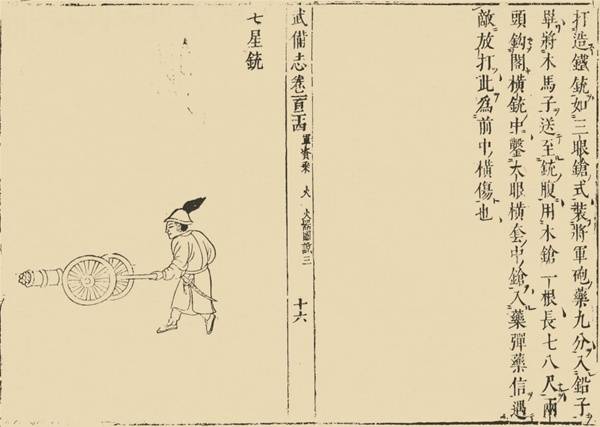 打造鐵銃如三眼鎗式裝將軍砲藥九分入鉛子
畢將木馬子送至銃腹用木鎗一根長七八尺兩
頭鈎閣橫銃中鑿大眼橫套中鎗入藥彈藥信遇
敵放打此爲前中橫傷也
武備志卷一百二十四 軍資乘 火 火器圖說三 十六
七星銃